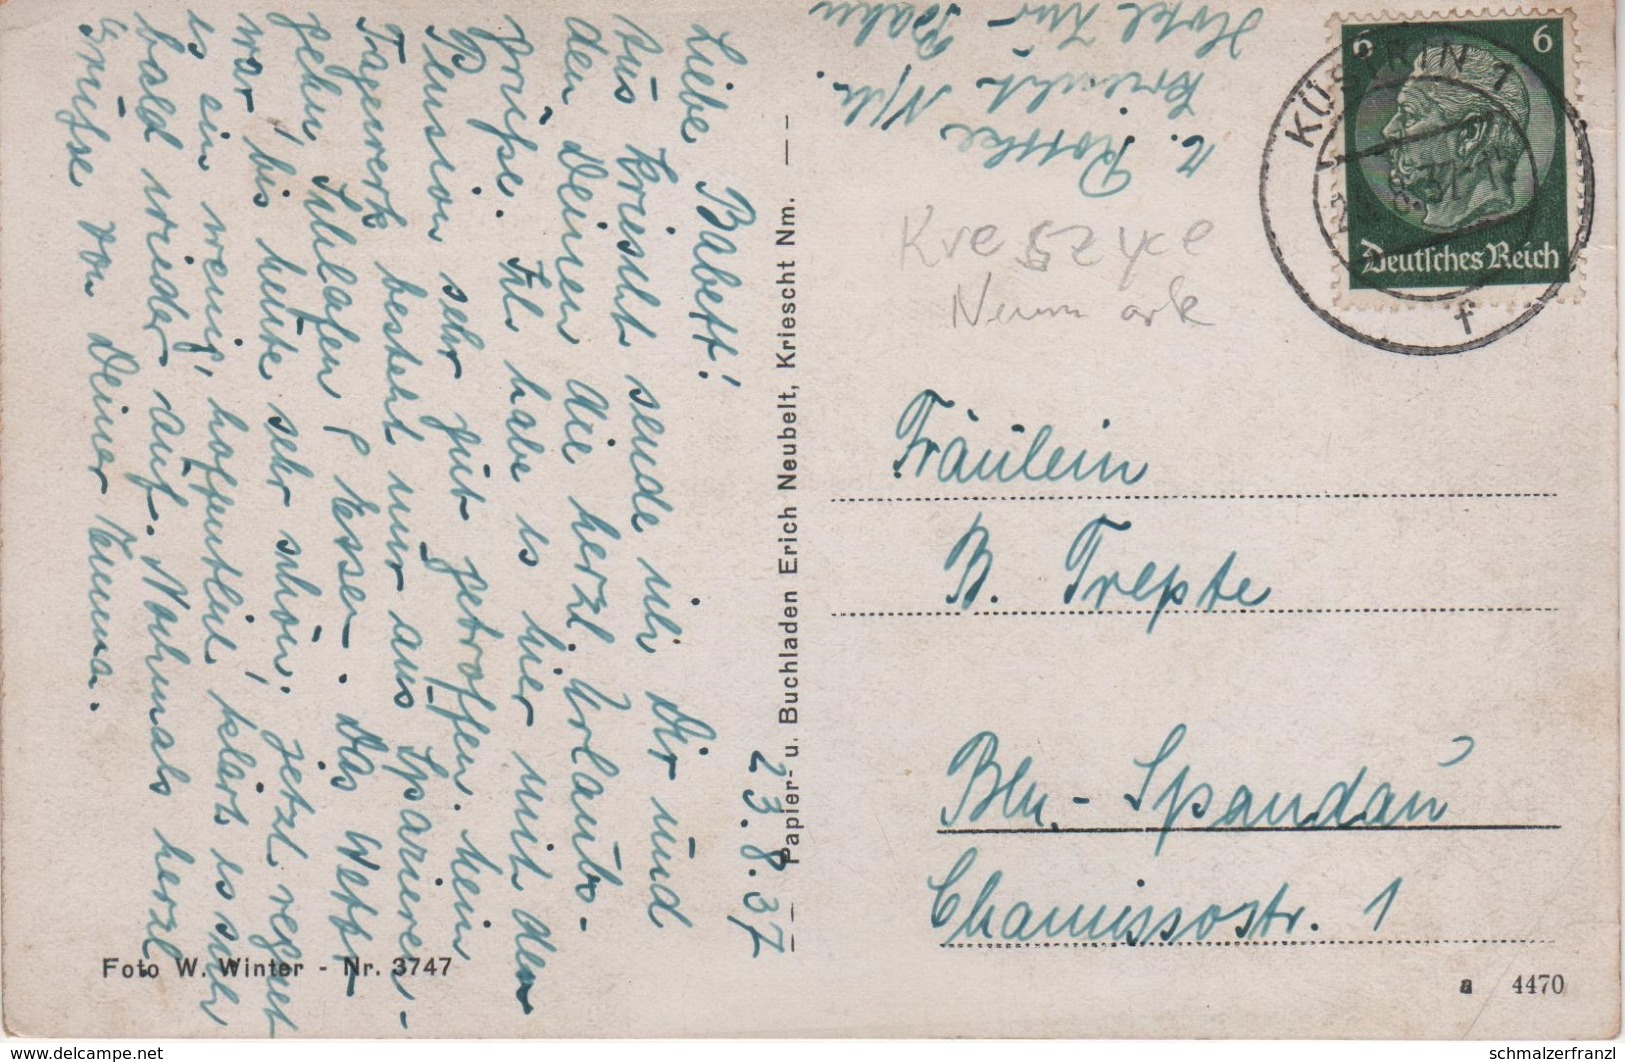 23.8.37
Liebe Babett!
Aus Kriescht sende ich Dir und
den Deinen die herzl. Urlaubs-
grüße. Ich habe es hier mit der
Pension sehr gut getroffen. Mein
Tagewerk besteht nur aus Spazieren-
gehen, Schlafen & Essen. Das Wetter
war bis heute sehr schön. Jetzt regnet
es ein wenig, hoffentlich klärt es sich
bald wieder auf. Nochmals herzl.
Grüsse von Deiner
Papier- u. Buchladen Erich Neubelt, Kriescht Nm.
Foto W. Winter - Nr. 3747
Kriescht N/M.
Hotel zur Bahn
Kreszyce
Neumark
KÜSTRIN 1
f
6 6
Deutsches Reich
Fräulein
B. Trepte
Bln.-Spandau
Chamissostr. 1
a 4470
www.delcampe.net
schmalzerfranzl